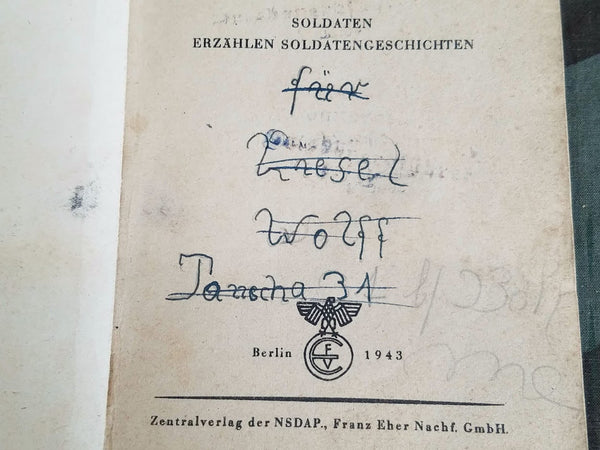 SOLDATEN
ERZÄHLEN SOLDATENGESCHICHTEN
für
Kresel
Wolff
Taucha 31
Berlin FV 1943
Zentralverlag der NSDAP., Franz Eher Nachf. GmbH.